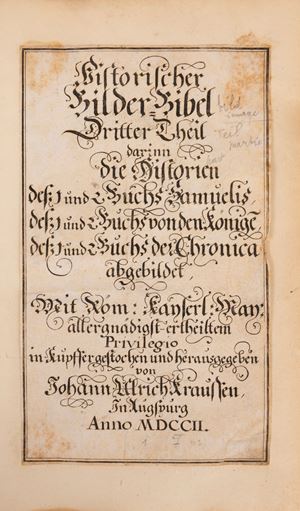 Historischer
Bilder-Bibel
Dritter Theil
darinn
die Historien
deß 1 und 2 Buchs Samuelis,
deß 1 und 2 Buchs von den Königē
deß 1 und 2 Buchs der Chronica
abgebildet,
Mit Rom: Kayserl: May:
allergnädigst ertheiltem
Privilegio
in Kupffer gestochen und herausgegeben
von
Johann Ulrich Kraussen,
In Augspurg
Anno MDCCII.